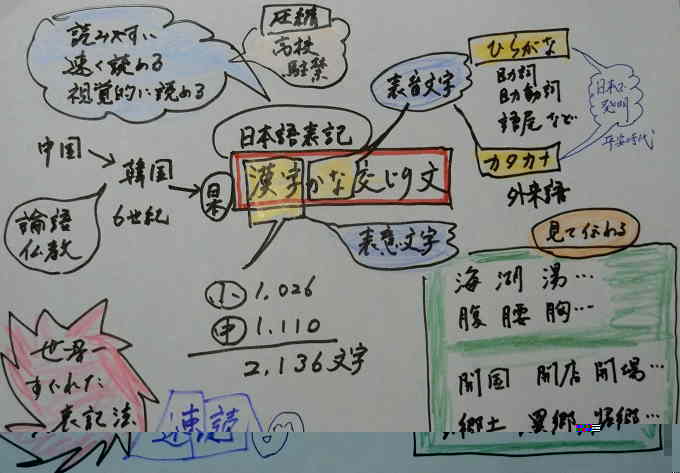 読みやすい
速く読める
視覚的に読める
圧縮
高校
駐禁
ひらがな
助詞
助動詞
語尾など
表音文字
日本で
発明
平安時代
カタカナ
外来語
日本語表記
漢字かな交じり文
中国
韓国
6世紀
日本
論語
仏教
表意文字
見て伝わる
小 1,026
中 1,110
2,136文字
海 湖 湯…
腹 腰 胸…
開国 開店 開場…
郷土 異郷
世界一
すぐれた
表記法
速読